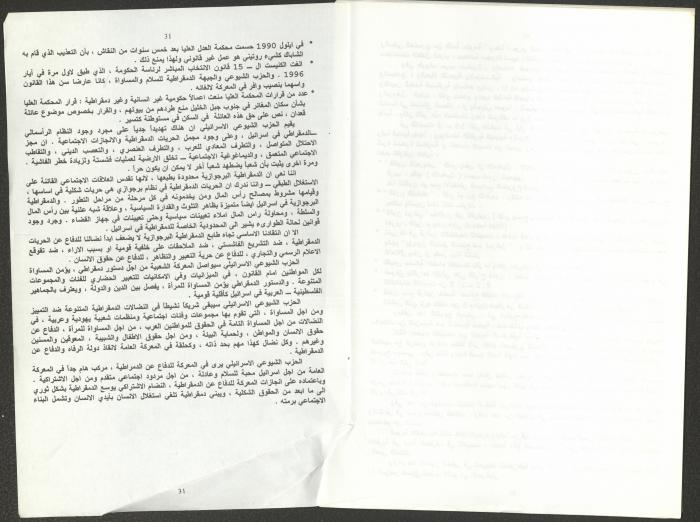 31
* في ايلول 1990 حسمت محكمة العدل العليا بعد خمس سنوات من النقاش ، بأن التعذيب الذي قام به
الشاباك كشيء روتيني هو عمل غير قانوني ولهذا يمنع ذلك .
* الغت الكنيست الـ 15 قانون الانتخاب المباشر لرئاسة الحكومة ، الذي طبق لاول مرة في أيار
1996 . والحزب الشيوعي والجبهة الدمقراطية للسلام والمساواة ، كانا عارضا سن هذا القانون
واسهما بنصيب وافر في المعركة لالغائه .
* عدد من قرارات المحكمة العليا منعت اعمالاً حكومية غير انسانية وغير دمقراطية : قرار المحكمة العليا
بشأن سكان المغائر في جنوب جبل الخليل منع طردهم من بيوتهم ، والقرار بخصوص موضوع عائلة
قعدان ، نص على حق هذه العائلة في السكن في مستوطنة كتسير .
يقيم الحزب الشيوعي الاسرائيلي ان هناك تهديداً جدياً على مجرد وجود النظام الرأسمالي
ـ الدمقراطي في اسرائيل ، وعلى وجود مجمل الحريات الدمقراطية والانجازات الاجتماعية . ان مجز
الاحتلال المتواصل ، والتطرف المعادي للعرب ، والتطرف العنصري ، والتعصب الديني ، والتقاطب
الاجتماعي المتعمق ، والديماغوغية الاجتماعية ـ تخلق الارضية لعمليات فتسنة ولزيادة خطر الفاشية .
ومرة اخرى يثبت بأن شعباً يضطهد شعباً آخر لا يمكن ان يكون حراً .
اننا نعي ان الدمقراطية البرجوازية محدودة بطبعها ، لانها تقدس العلاقات الاجتماعي القائمة على
الاستغلال الطبقي ـ واننا ندرك ان الحريات الدمقراطية في نظام برجوازي هي حريات شكلية في اساسها ،
وقيامها مشروط بمصالح رأس المال ومن يخدمونه في كل مرحلة من مراحل التطور . والدمقراطية
البرجوازية في اسرائيل ايضاً متميزة بظاهر التلوث والقدارة السياسية ، وعلاقة شبه علنية بين رأس المال
والسلطة ، ومحاولة راس المال املاء تعيينات سياسية وحتى تعيينات في جهاز القضاء . وجرد وجود
قوانين لحالة الطوارىء يشير الى المحدودية الخاصة للدمقراطية في اسرائيل .
الا ان انتقادنا الاساسي تجاه طابع الدمقراطية البرجوازية لا يضعف ابداً نضالنا للدفاع عن الحريات
الدمقراطية ، ضد التشريع الفاشستي ، ضد الملاحقات على خلفية قومية او بسبب الاراء ، ضد تقوقع
الاعلام الرسمي والتجاري ، للدفاع عن حرية التعبير والتظاهر ، للدفاع عن حقوق الانسان .
الحزب الشيوعي الاسرائيلي سيواصل المعركة الشعبية من اجل دستور دمقراطي ، يؤمن المساواة
لكل المواطنين امام القانون ، في الميزانيات وفي الامكانيات للتعبير الحضاري للفئات والمجموعات
المتنوعة . والدستور الدمقراطي يؤمن المساواة للمرأة ، يفصل بين الدين والدولة ، ويعترف بالجماهير
الفلسطينية ـ العربية في اسرائيل كأقلية قومية .
الحزب الشيوعي الاسرائيلي سيبقى شريكاً نشيطاً في النضالات الدمقراطية المتنوعة ضد التمييز
ومن اجل المساواة ، التي تقوم بها مجموعات وفئات اجتماعية ومنظمات شعبية يهودية وعربية ، في
النضالات من اجل المساواة التامة في الحقوق للمواطنين العرب ، من اجل المساواة للمرأة ، الدفاع عن
حقوق الانسان والمواطن ، ولحماية البيئة ، ومن اجل حقوق الاطفال والشبيبة ، المعوقين والمسنين
وغيرهم . وكل نضال كهذا مهم بحد ذاته ، وكحلقة في المعركة العامة لانقاذ دولة الرفاه والدفاع عن
الدمقراطية .
الحزب الشيوعي الاسرائيلي يرى في المعركة للدفاع عن الدمراطية ، مركب هام جداً في المعركة
العامة من اجل اسرائيل محبة للسلام وعادلة ، من اجل مردود اجتماعي متقدم ومن اجل الاشتراكية .
وباعتماده على انجازات المعركة للدفاع عن الدمقراطية ، النضام الاشتراكي يوسع الدمقراطية بشكل ثوري
الى ما ابعد من الحقوق الشكلية ، ويبني دمقراطية تلغي استغلال الانسان بأيدي الانسان وتشمل البناء
الاجتماعي برمته .
31